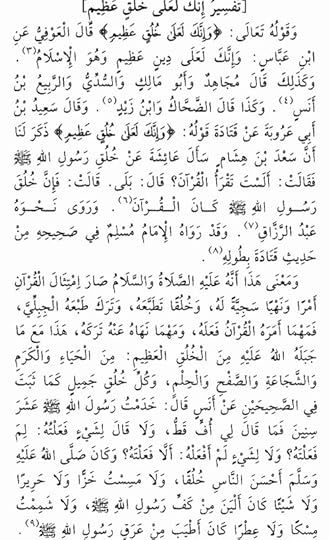 [تَفْسِيرُ إِنَّكَ لَعَلَى خُلُقٍ عَظِيمٍ]
وَقَوْلُهُ تَعَالَى: ﴿وَإِنَّكَ لَعَلَىٰ خُلُقٍ عَظِيمٍ﴾ قَالَ الْعَوْفِيُّ عَنِ
ابْنِ عَبَّاسٍ: وَإِنَّكَ لَعَلَى دِينٍ عَظِيمٍ وَهُوَ الْإِسْلَامُ(٣).
وَكَذَلِكَ قَالَ مُجَاهِدٌ وَأَبُو مَالِكٍ وَالسُّدِّيُّ وَالرَّبِيعُ بْنُ
أَنَسٍ(٤). وَكَذَا قَالَ الضَّحَّاكُ وَابْنُ زَيْدٍ(٥). وَقَالَ سَعِيدُ بْنُ
أَبِي عَرُوبَةَ عَنْ قَتَادَةَ قَوْلُهُ: ﴿وَإِنَّكَ لَعَلَىٰ خُلُقٍ عَظِيمٍ﴾ ذُكِرَ لَنَا
أَنَّ سَعْدَ بْنَ هِشَامٍ سَأَلَ عَائِشَةَ عَنْ خُلُقِ رَسُولِ اللهِ ﷺ
فَقَالَتْ: أَلَسْتَ تَقْرَأُ الْقُرْآنَ؟ قَالَ: بَلَى. قَالَتْ: فَإِنَّ خُلُقَ
رَسُولِ اللهِ ﷺ كَانَ الْقُرْآنَ(٦). وَرَوَى نَحْوَهُ
عَبْدُ الرَّزَّاقِ(٧). وَقَدْ رَوَاهُ الْإِمَامُ مُسْلِمٌ فِي صَحِيحِهِ مِنْ
حَدِيثِ قَتَادَةَ بِطُولِهِ(٨).
وَمَعْنَى هَذَا أَنَّهُ عَلَيْهِ الصَّلَاةُ وَالسَّلَامُ صَارَ امْتِثَالُ الْقُرْآنِ
أَمْرًا وَنَهْيًا سَجِيَّةً لَهُ، وَخُلُقًا تَطَبَّعَهُ، وَتَرَكَ طَبْعَهُ الْجِبِلِّيَّ،
فَمَهْمَا أَمَرَهُ الْقُرْآنُ فَعَلَهُ، وَمَهْمَا نَهَاهُ عَنْهُ تَرَكَهُ، هَذَا مَعَ مَا
جَبَلَهُ اللهُ عَلَيْهِ مِنَ الْخُلُقِ الْعَظِيمِ: مِنَ الْحَيَاءِ وَالْكَرَمِ
وَالشَّجَاعَةِ وَالصَّفْحِ وَالْحِلْمِ، وَكُلِّ خُلُقٍ جَمِيلٍ كَمَا ثَبَتَ
فِي الصَّحِيحَيْنِ عَنْ أَنَسٍ قَالَ: خَدَمْتُ رَسُولَ اللهِ ﷺ عَشَرَ
سِنِينَ فَمَا قَالَ لِي أُفٍّ قَطُّ، وَلَا قَالَ لِشَيْءٍ فَعَلْتُهُ: لِمَ
فَعَلْتَهُ؟ وَلَا لِشَيْءٍ لَمْ أَفْعَلْهُ: أَلَا فَعَلْتَهُ؟ وَكَانَ صَلَّى اللهُ عَلَيْهِ
وَسَلَّمَ أَحْسَنَ النَّاسِ خُلُقًا، وَلَا مَسِسْتُ خَزًّا وَلَا حَرِيرًا
وَلَا شَيْئًا كَانَ أَلْيَنَ مِنْ كَفِّ رَسُولِ اللهِ ﷺ، وَلَا شَمِمْتُ
مِسْكًا وَلَا عِطْرًا كَانَ أَطْيَبَ مِنْ عَرَقِ رَسُولِ اللهِ ﷺ(٩).